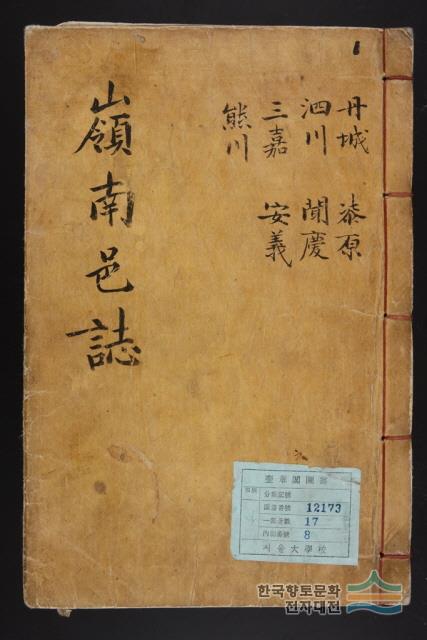 丹城 漆原
泗川 聞慶
三嘉 安義
熊川
嶺南邑誌
奎章閣圖書
分類記號
圖書番號 12173
一部冊數 17
內冊番號 8
서울大學校
한국향토문화
전자대전